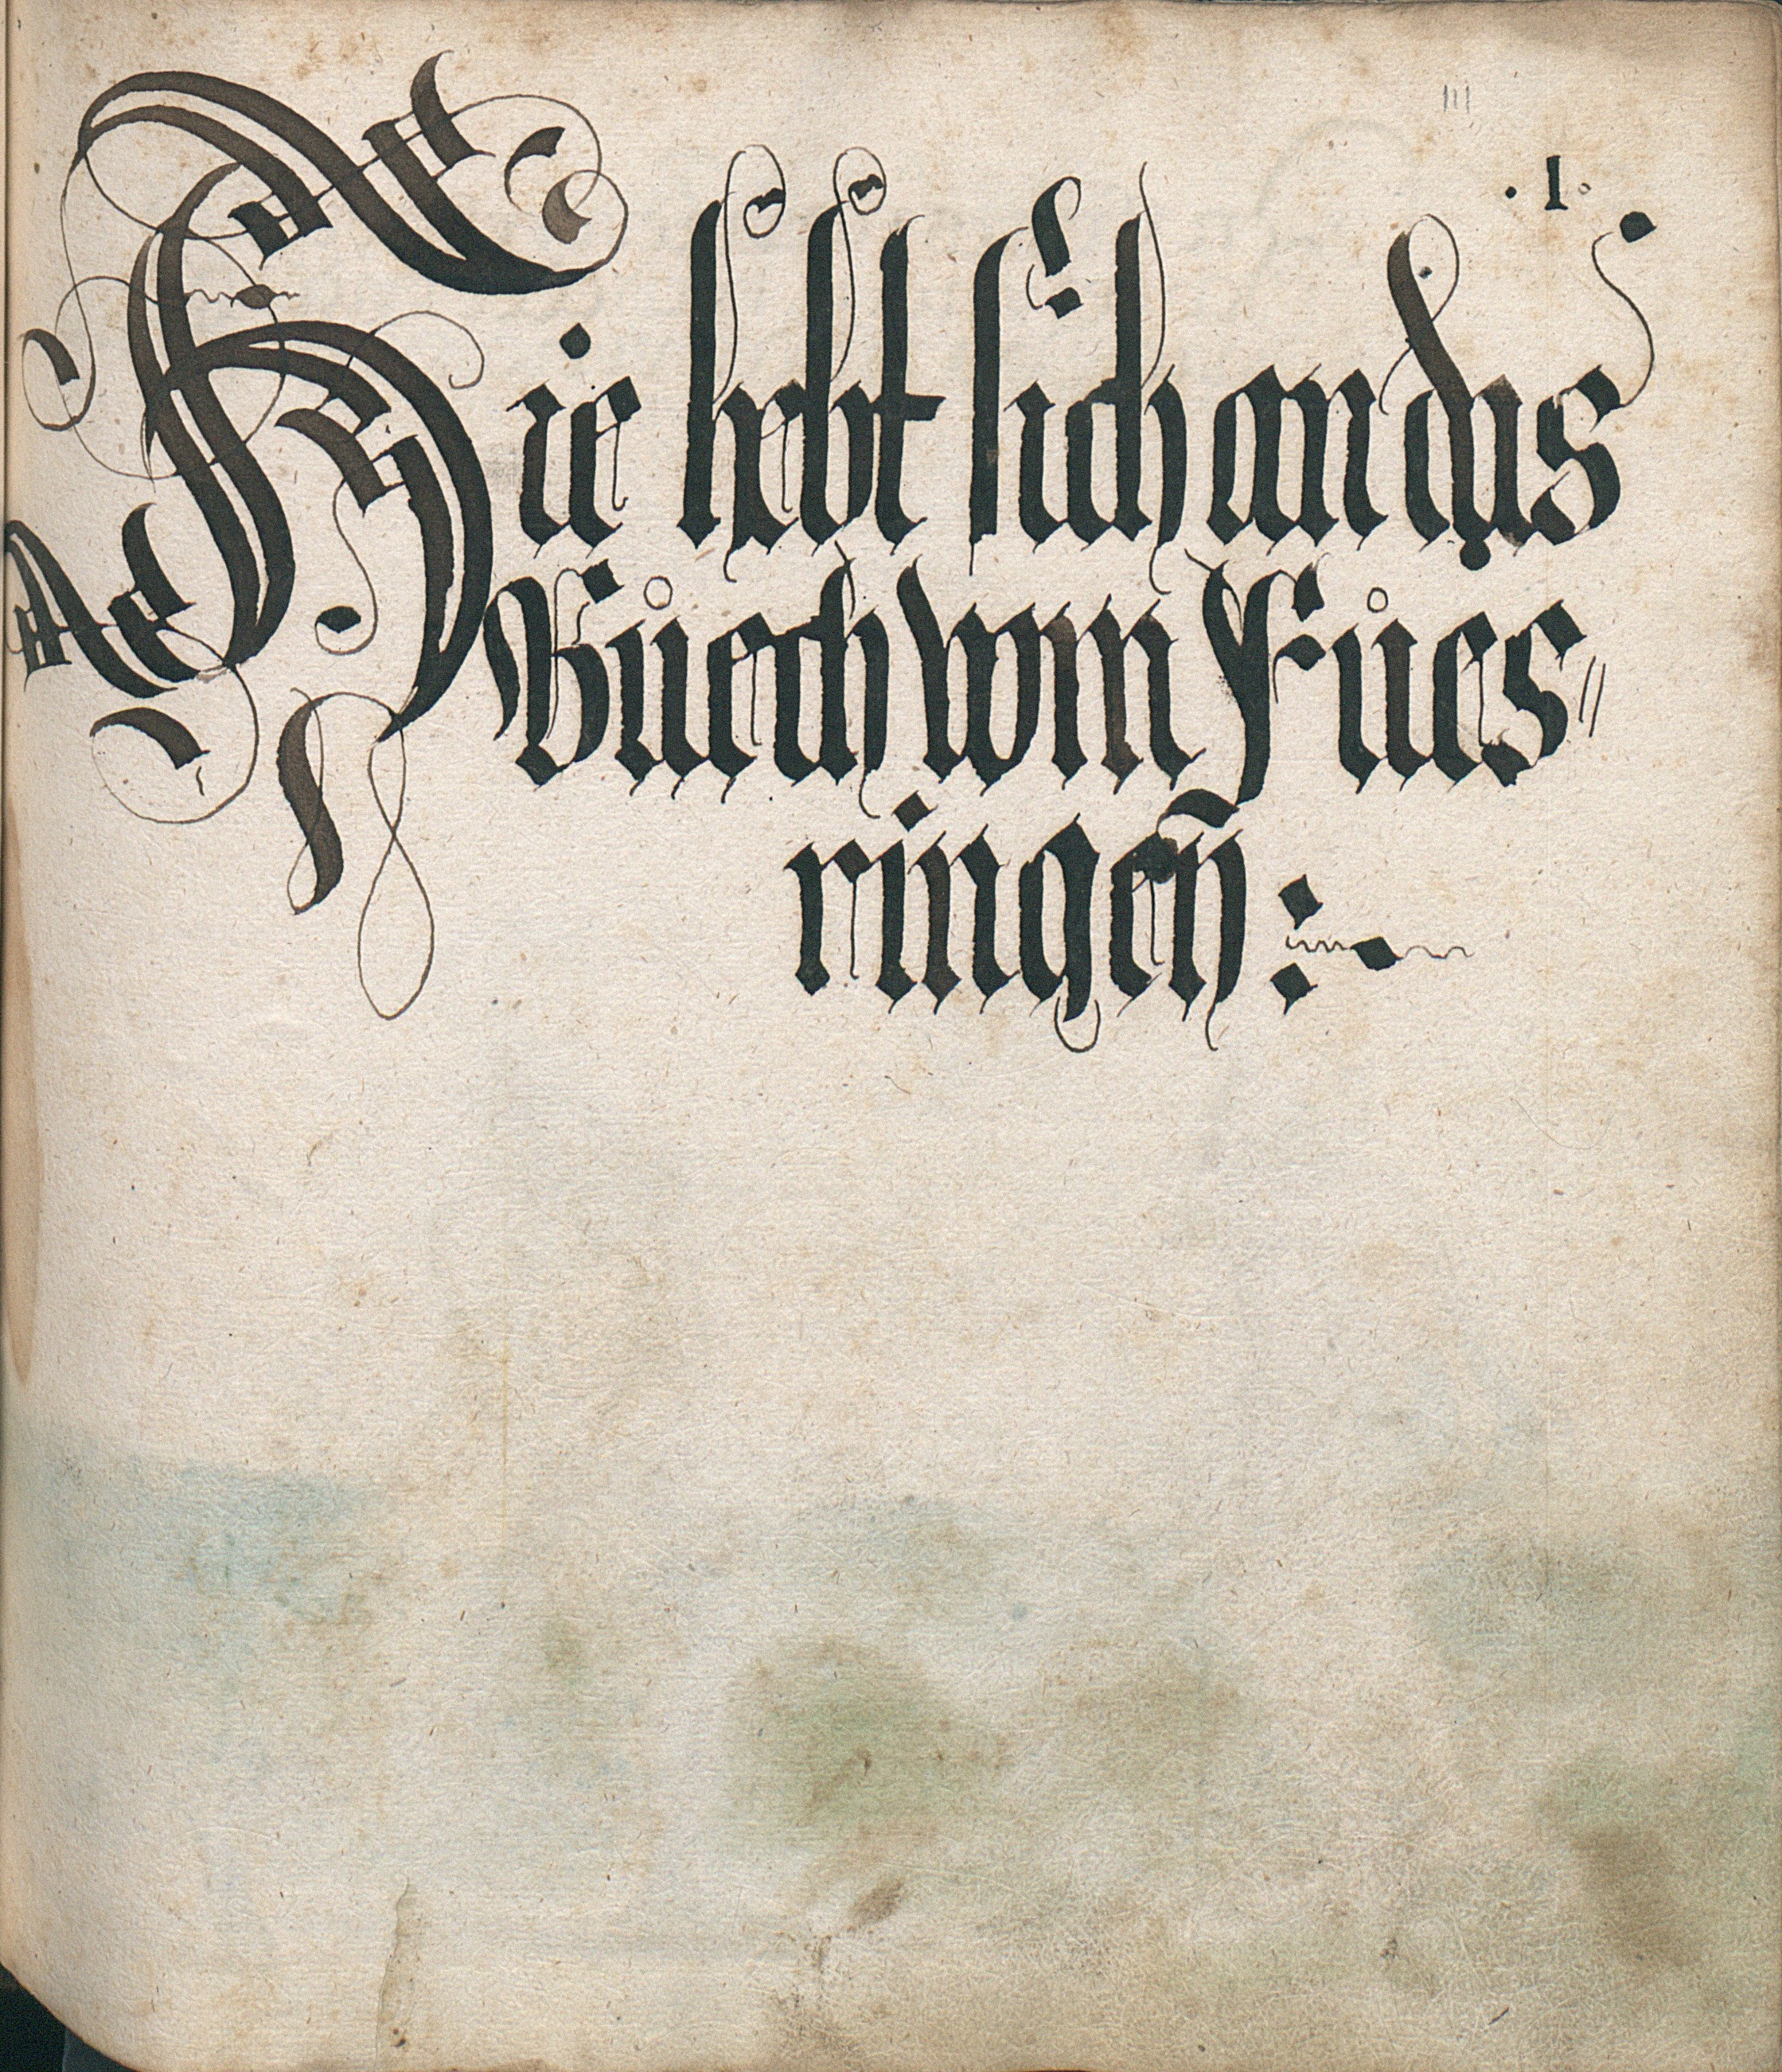 III
· 1 ·
Hie hebt sich an dis
Bůech vom Fůes//
ringen̄ :~